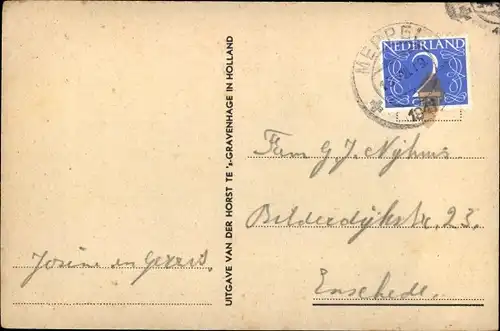 MEPPEL
NEDERLAND
2
UITGAVE VAN DER HORST TE 's-GRAVENHAGE IN HOLLAND
Fam G J. Nijhuis
Bilderdijkstr. 23.
Enschede.
Josine en Gerrit.